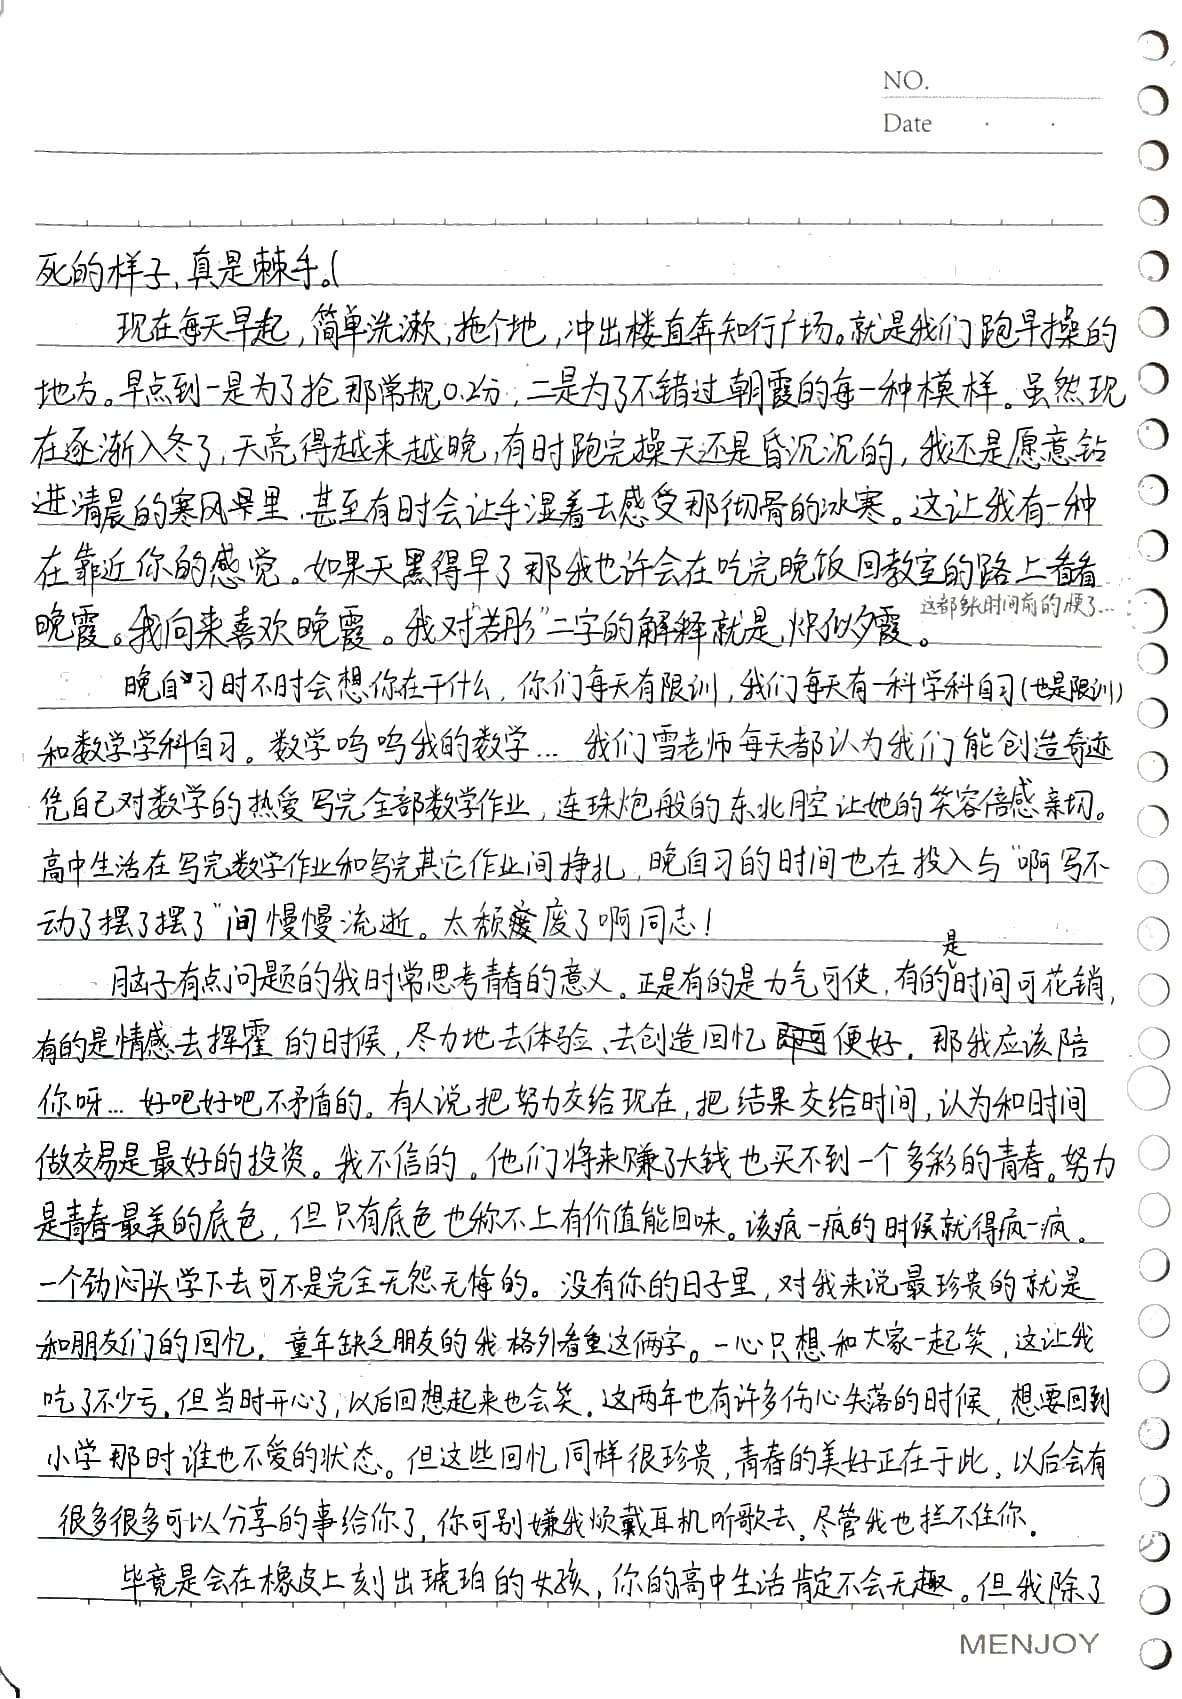 NO.
Date
死的样子,真是棘手。(
现在每天早起,简单洗漱,拖个地,冲出楼直奔知行广场。就是我们跑早操的
地方。早点到一是为了抢那常规0.2分,二是为了不错过朝霞的每一种模样。虽然现
在逐渐入冬了,天亮得越来越晚,有时跑完操天还是昏沉沉的,我还是愿意钻
进清晨的寒风里,甚至有时会让手湿着去感受那彻骨的冰寒。这让我有一种
在靠近你的感觉。如果天黑得早了那我也许会在吃完晚饭回教室的路上看看
这都是时间前的便了...
晚霞。我向来喜欢晚霞。我对"若彤"二字的解释就是,炽似夕霞。
晚自习时不时会想你在干什么,你们每天有限训,我们每天有一科学科自习(也是限训)
和数学学科自习。数学呜呜我的数学... 我们雪老师每天都认为我们能创造奇迹
凭自己对数学的热爱写完全部数学作业,连珠炮般的东北腔让她的笑容倍感亲切。
高中生活在写完数学作业和写完其它作业间挣扎,晚自习的时间也在投入与"啊写不
动了摆了摆了"间慢慢流逝。太颓废了啊同志!
脑子有点问题的我时常思考青春的意义。正是有的是力气可使,有的是时间可花销,
有的是情感去挥霍的时候,尽力地去体验、去创造回忆便好。那我应该陪
你呀... 好吧好吧不矛盾的。有人说把努力交给现在,把结果交给时间,认为和时间
做交易是最好的投资。我不信的。他们将来赚了大钱也买不到一个多彩的青春。努力
是青春最美的底色,但只有底色也称不上有价值能回味。该疯一疯的时候就得疯一疯。
一个劲闷头学下去可不是完全无怨无悔的。没有你的日子里,对我来说最珍贵的就是
和朋友们的回忆。童年缺乏朋友的我格外看重这俩字。一心只想和大家一起笑,这让我
吃了不少亏。但当时开心了,以后回想起来也会笑。这两年也有许多伤心失落的时候,想要回到
小学那时谁也不爱的状态。但这些回忆同样很珍贵,青春的美好正在于此。以后会有
很多很多可以分享的事给你了,你可别嫌我烦戴耳机听歌去。尽管我也拦不住你。
毕竟是会在橡皮上刻出琥珀的女孩,你的高中生活肯定不会无趣。但我除了
MENJOY